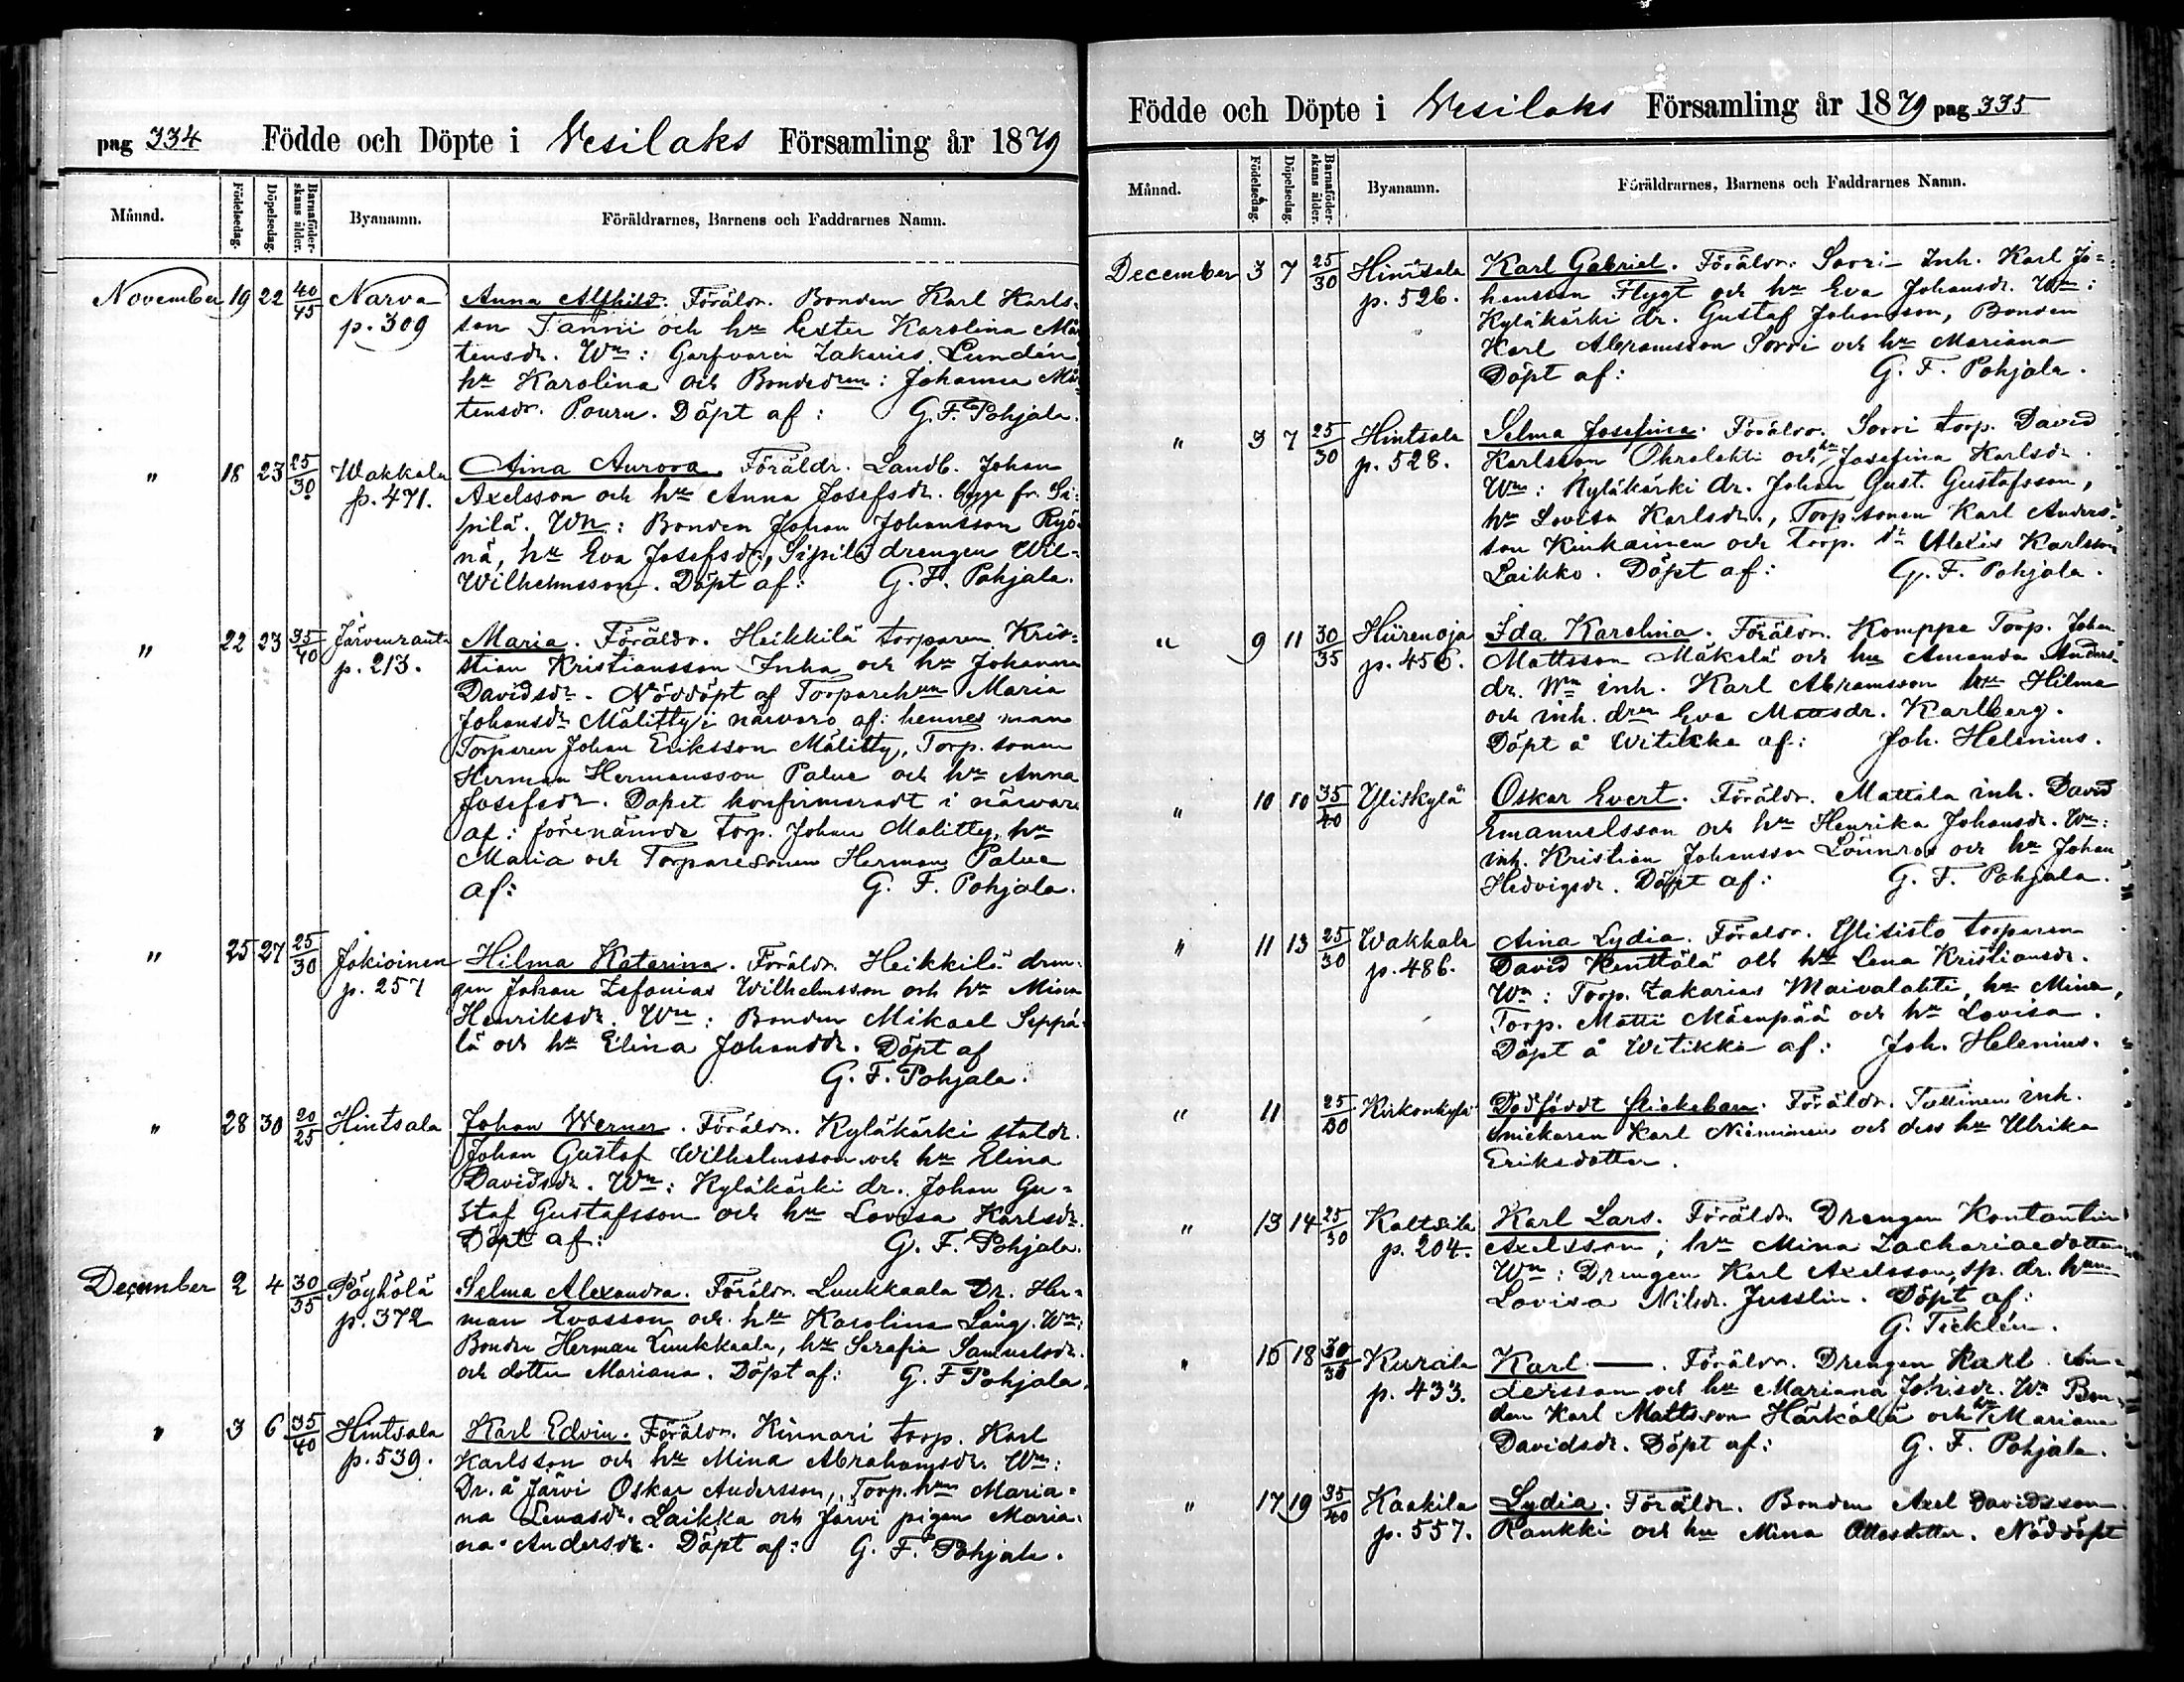 pag 334 Födde och Döpte i Vesilaks Församling år 1879
Månad. Födelsedag. Döpelsedag. Barnaföder-skans ålder. Byanamn. Föräldrarnes, Barnens och Faddrarnes Namn.
November 19 22 40/45 Narva Anna Alfhild. Föräldr. Bonden Karl Karls-
p. 309 son Tanni och hu Ester Karolina Mår-
tensdr. Wn: Garfvarin Zakarias Lundén
hu Karolina och Bondedren: Johanna Mår-
tensdr. Pouru. Döpt af: G. F. Pohjala.
" 18 23 25/30 Wakkala Aina Aurora. Föräldr. Landb. Johan
p. 471. Axelsson och hu Anna Josefsdr. bägge fr. Si-
pilä. Wn: Bonden Johan Johansson Ryö-
nä, hu Eva Josefsdr, Sipilä drengen Wil-
Wilhelmsson. Döpt af: G. F. Pohjala.
" 22 23 35/40 Järvenranta Maria. Föräldr. Heikkilä torparen Kris-
p. 213. stian Kristiansson Inha och hu Johanna
Davidsdr. Nöddöpt af Torparehun Maria
Johansdr Mälitty i närvaro af: hennes man
Torparen Johan Eriksson Mälitty, Torp. sonen
Herman Hermansson Palve och hu Anna
Josefsdr. Dopet konfirmeradt i närvaro
af: förenämnde Torp. Johan Malitty, hu
Maria och Torparesonen Herman Palve
af: G. F. Pohjala.
" 25 27 25/30 Jokioinen Hilma Katarina. Föräldr. Heikkilä dren-
p. 257 gen Johan Zefanias Wilhelmsson och hu Mina
Henriksdr. Wn: Bonden Mikael Seppä-
lä och hu Elina Johansdr. Döpt af
G. F. Pohjala.
" 28 30 20/25 Hintsala Johan Werner. Föräldr. Kyläkärki staldr.
Johan Gustaf Wilhelmsson och hu Elina
Davidsdr. Wn: Kyläkärki dr. Johan Gu-
staf Gustafsson och hu Lovisa Karlsdr.
Döpt af: G. F. Pohjala.
December 2 4 30/35 Pöyhölä Selma Alexandra. Föräldr. Luukkaala Dr. Her-
p. 372 man Evasson och hu Karolina Lång. Wn:
Bonden Herman Luukkaala, hu Serafia Samuelsdr.
och dotter Mariana. Döpt af: G. F Pohjala.
" 3 6 35/40 Hintsala Karl Edvin. Föräldr. Kinnari torp. Karl
p. 539. Karlsson och hu Mina Abrahamsdr. Wn:
Dr. å Järvi Oskar Andersson, Torp. hun Maria-
na Lenasdr. Laikka och Järvi pigan Maria-
na Andersdr. Döpt af: G. F. Pohjala.
Födde och Döpte i Vesilaks Församling år 1879 pag 335
Månad. Födelsedag. Döpelsedag. Barnaföder-skans ålder. Byanamn. Föräldrarnes, Barnens och Faddrarnes Namn.
December 3 7 25/30 Hintsala Karl Gabriel. Föräldr. Sorri Inh. Karl Jo-
p. 526. hansson Flygt och hu Eva Johansdr. Wn:
Kyläkärki dr. Gustaf Johansson, Bonden
Karl Abramsson Sorri och hu Mariana
Döpt af: G. F. Pohjala.
" 3 7 25/30 Hintsala Selma Josefina. Föräldr. Sorri torp. David
p. 528. Karlsson Ohralahti och hu Josefina Karlsdr.
Wn: Kyläkärki dr. Johan Gust. Gustafsson,
hu Lovisa Karlsdr., Torp. sonen Karl Anders-
son Kinkainen och torp. Alexis Karlsson
Laikko. Döpt af: G. F. Pohjala.
" 9 11 30/35 Hiirenoja Ida Karolina. Föräldr. Komppa Torp. Johan
p. 456. Mattsson Mäkelä och hu Amanda Anders-
dr. Wn inh. Karl Abramsson hu Hilma
och inh. dren Eva Mattsdr. Karlberg.
Döpt å Witikka af: Joh. Helenius.
" 10 10 35/40 Yliskylä Oskar Evert. Föräldr. Mattala inh. David
Emanuelsson och hu Henrika Johansdr. Wn:
inh. Kristian Johansson Lönnros och hu Johan
Hedvigsdr. Döpt af: G. F. Pohjala.
" 11 13 25/30 Wakkala Aina Lydia. Föräldr. Ylisisto torparen
p. 486. David Kenttälä och hu Lena Kristiansdr.
Wn: Torp. Zakarias Maivalahti, hu Mina,
Torp. Matti Mäenpää och hu Lovisa.
Döpt å Witikka af: Joh. Helenius.
" 11 25/30 Kirkonkylä Dödfödt flickebarn. Föräldr. Tallinen inh.
snickaren Karl Nieminen och dess hu Ulrika
Eriksdotter.
" 13 14 25/30 Kaltsila Karl Lars. Föräldr. Drengen Konstantin
p. 204. Axelsson, hu Mina Zachariaedotter
Wn: Drengen Karl Axelsson, sp. dr. hun
Lovisa Nilsdr. Jusslin. Döpt af:
G. Ticklén.
" 16 18 30/35 Kurala Karl —. Föräldr. Drengen Karl An-
p. 433. dersson och hu Mariana Johisdr. Wn Bon-
den Karl Mattsson Härkälä och hu Mariana
Davidsdr. Döpt af: G. F. Pohjala.
" 17 19 35/40 Kaakila Lydia. Föräldr. Bonden Axel Davidsson
p. 557. Rankki och hu Mina Ottosdotter. Nöddöpt